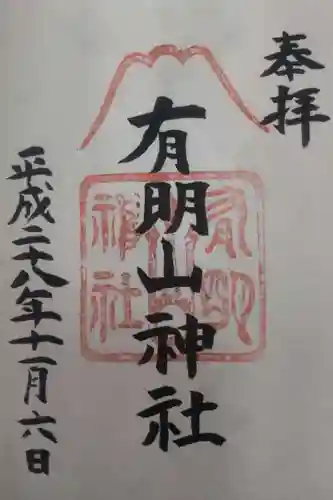 奉拝
有明山神社
有明山神社
平成二十八年十一月六日